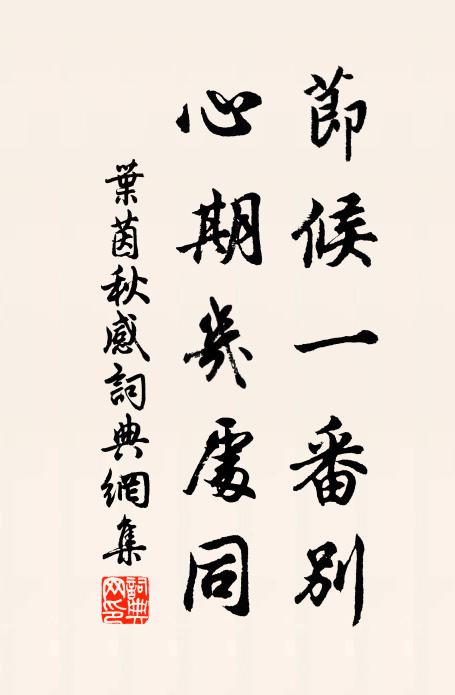 節候一番別
心期幾處同
葉茵秋感詞典網集
詞典網印